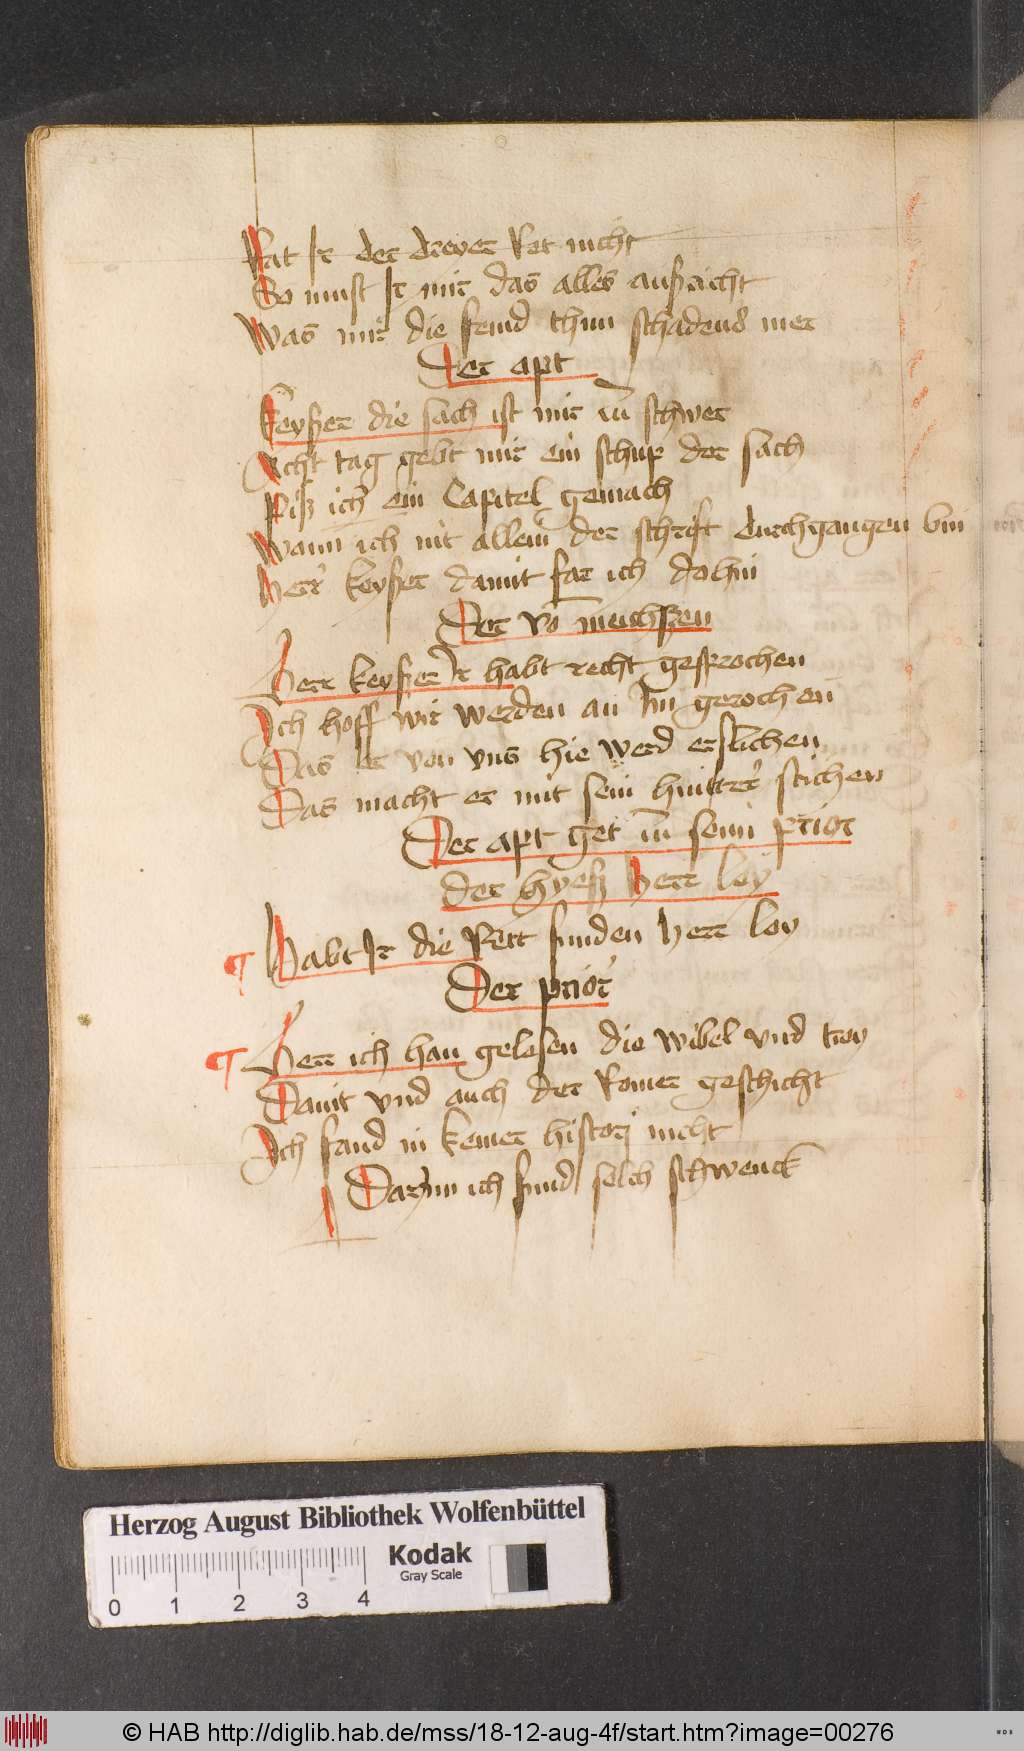 Rat Ir der dreyer Ret nicht
So must Ir mir das alles ausricht
Was mir die feind thun schadens mer
Der apt
Keyser die sach ist mir zu schwer
Acht tag gebt mir ein schup der sach
Piß ich ein Capitel gemach
Wann ich nit allein der schrift durchgangen bin
Herr keyser damit far ich dohin
Der vo
Herr keyser Ir habt recht gesprochen
Ich hoff wir werden an Im gerochen
Das er von vns hie werd erslichen
Das macht er mit sein stichen
Der apt get zu seim prior
der hyeß Herr loy
Habt Ir die Rett funden Herr loy
Der prior
Herr ich han gelesen die wibel vnd troy
Damit vnd auch der Romer geschicht
Ich fand in keiner histori nicht
Darynn ich fund solch schwenck
Herzog August Bibliothek Wolfenbüttel
Kodak
Gray Scale
0 1 2 3 4
© HAB http://diglib.hab.de/mss/18-12-aug-4f/start.htm?image=00276